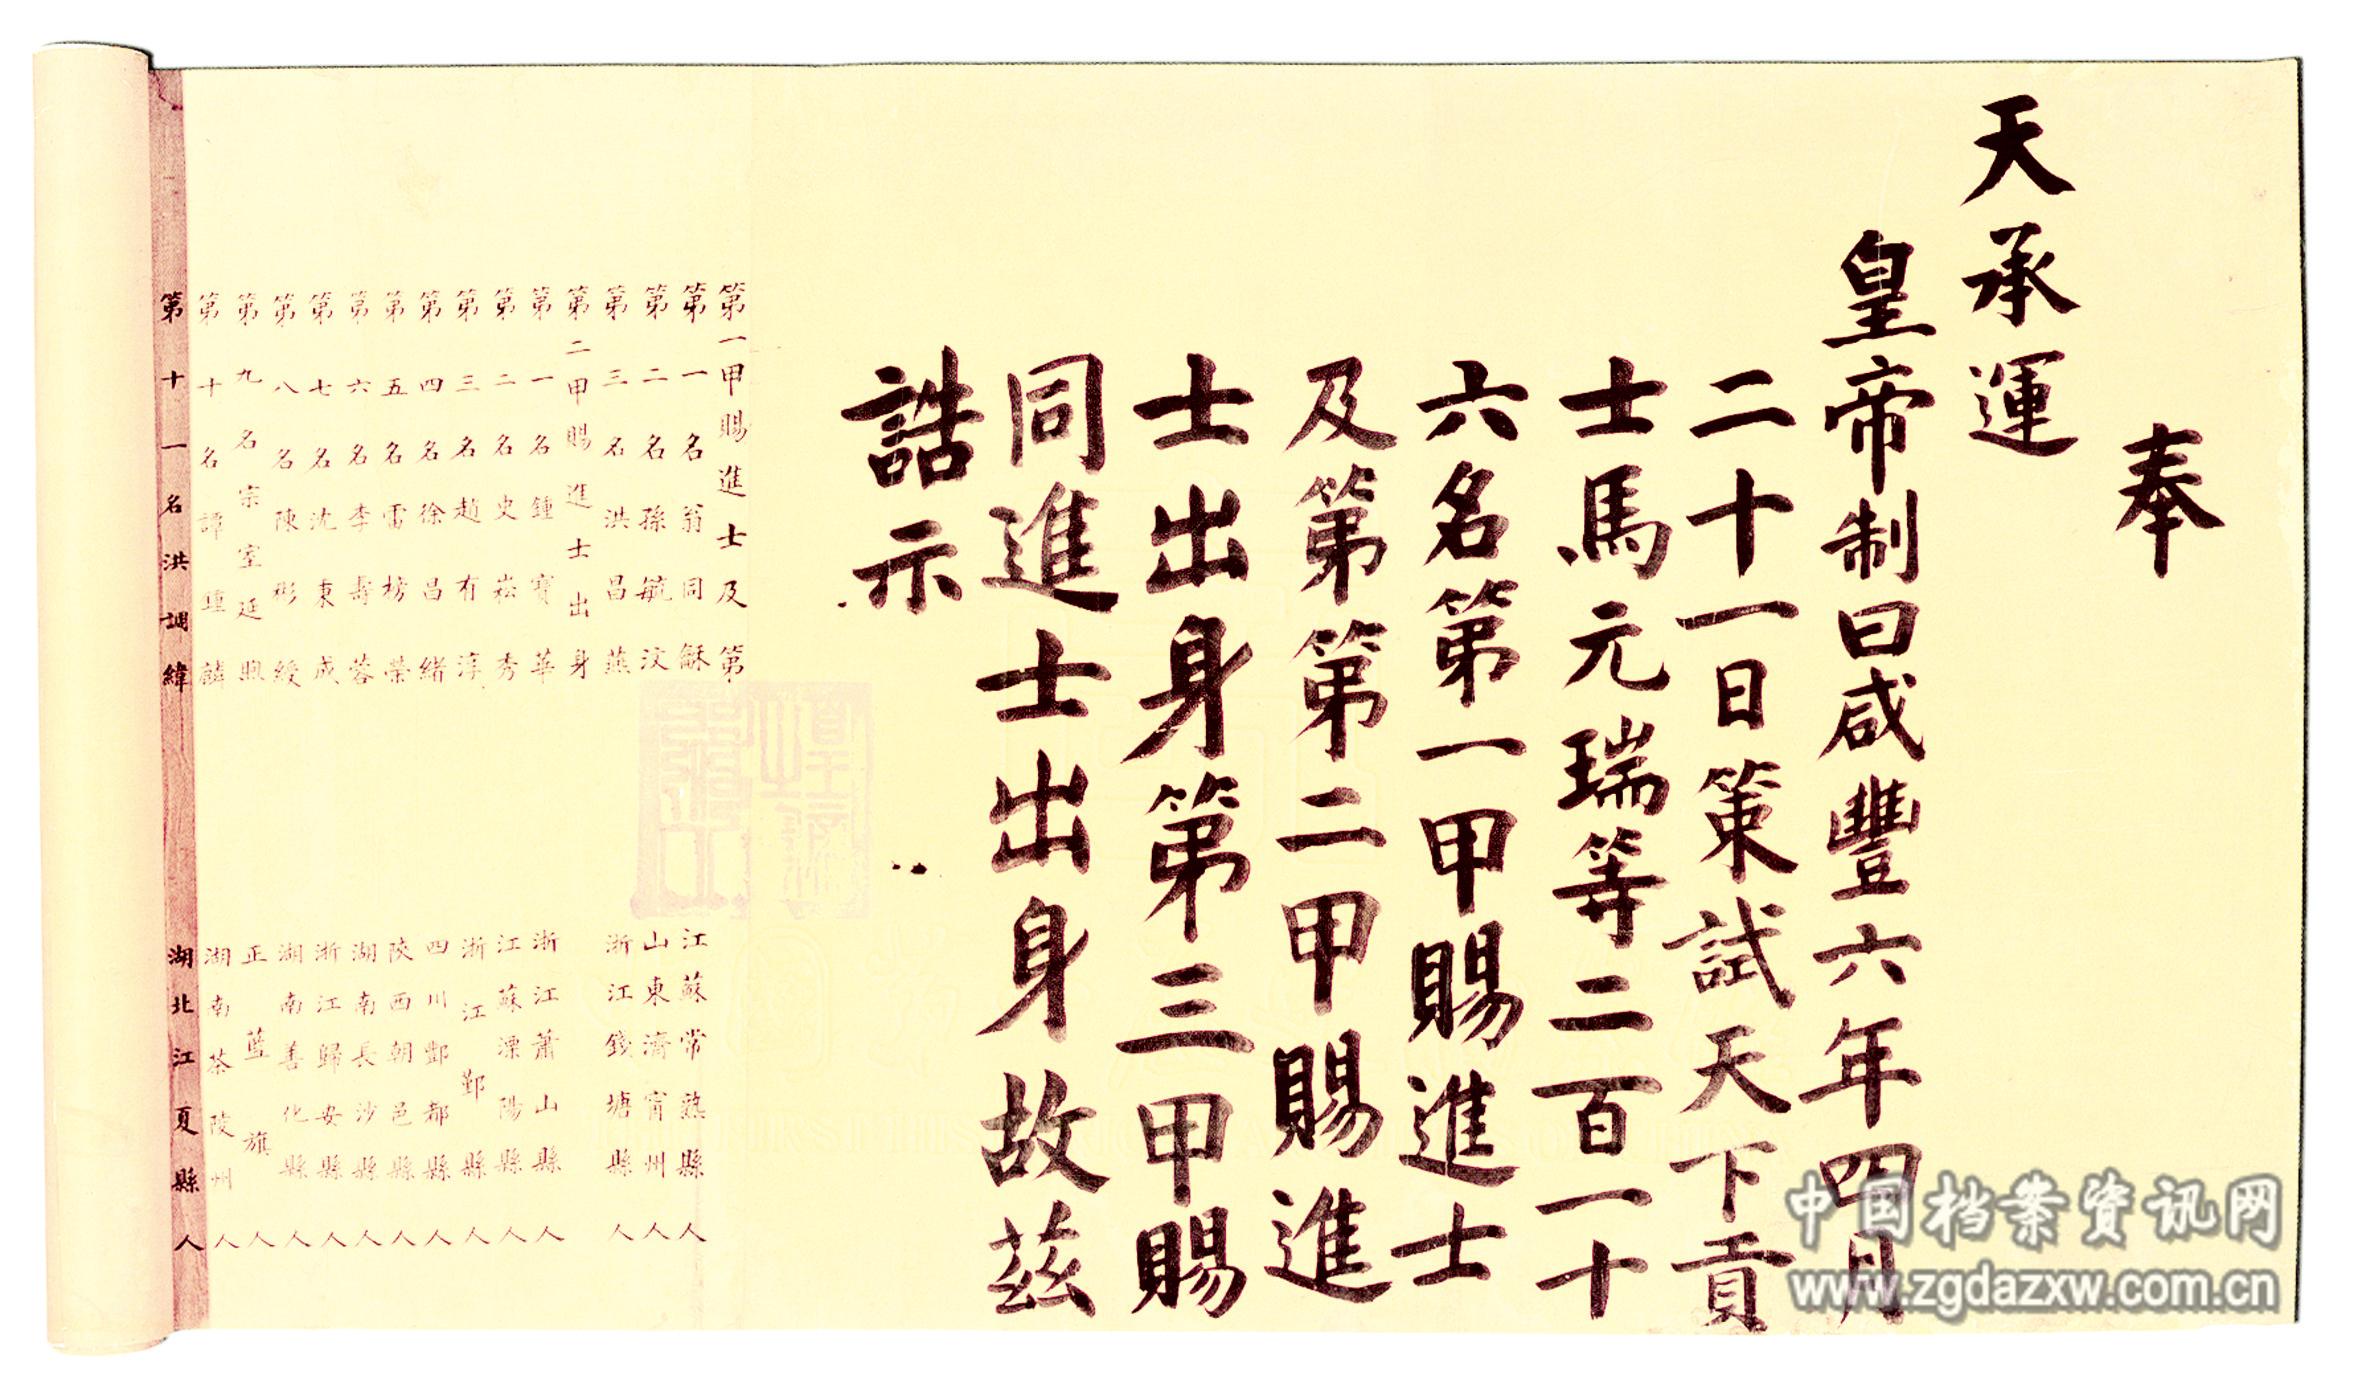 奉
天承運
皇帝制曰咸豐六年四月
二十一日策試天下貢
士馬元瑞等二百一十
六名第一甲賜進士
及第第二甲賜進
士出身第三甲賜
同進士出身故茲
誥示
第一甲賜進士及第
第一名翁同龢 江蘇常熟縣人
第二名孫毓汶 山東濟甯州人
第三名洪昌燕 浙江錢塘縣人
第二甲賜進士出身
第一名鍾寶華 浙江蕭山縣人
第二名史崧秀 江蘇溧陽縣人
第三名趙有淳 浙江鄞縣人
第四名徐昌緒 四川酆都縣人
第五名雷榜榮 陝西朝邑縣人
第六名李壽蓉 湖南長沙縣人
第七名沈秉成 浙江歸安縣人
第八名陳彬綬 湖南善化縣人
第九名宗室延煦 正藍旗人
第十名譚鍾麟 湖南茶陵州人
第十一名洪調緯 湖北江夏縣人
中国档案资讯网
www.zgdazxw.com.cn